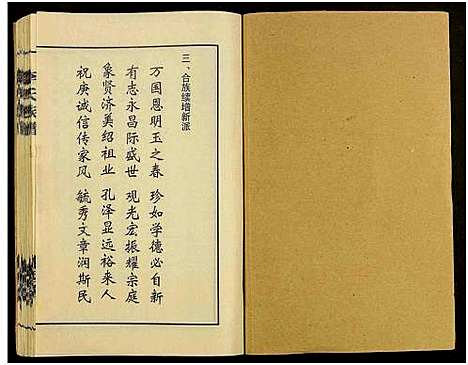 三、合族续增新派
万国恩明玉之春　珍如学德必自新
有志永昌际盛世　观光宏振耀宗庭
象贤济美绍祖业　孔泽显远裕来人
祝庚诚信传家风　毓秀文章润斯民